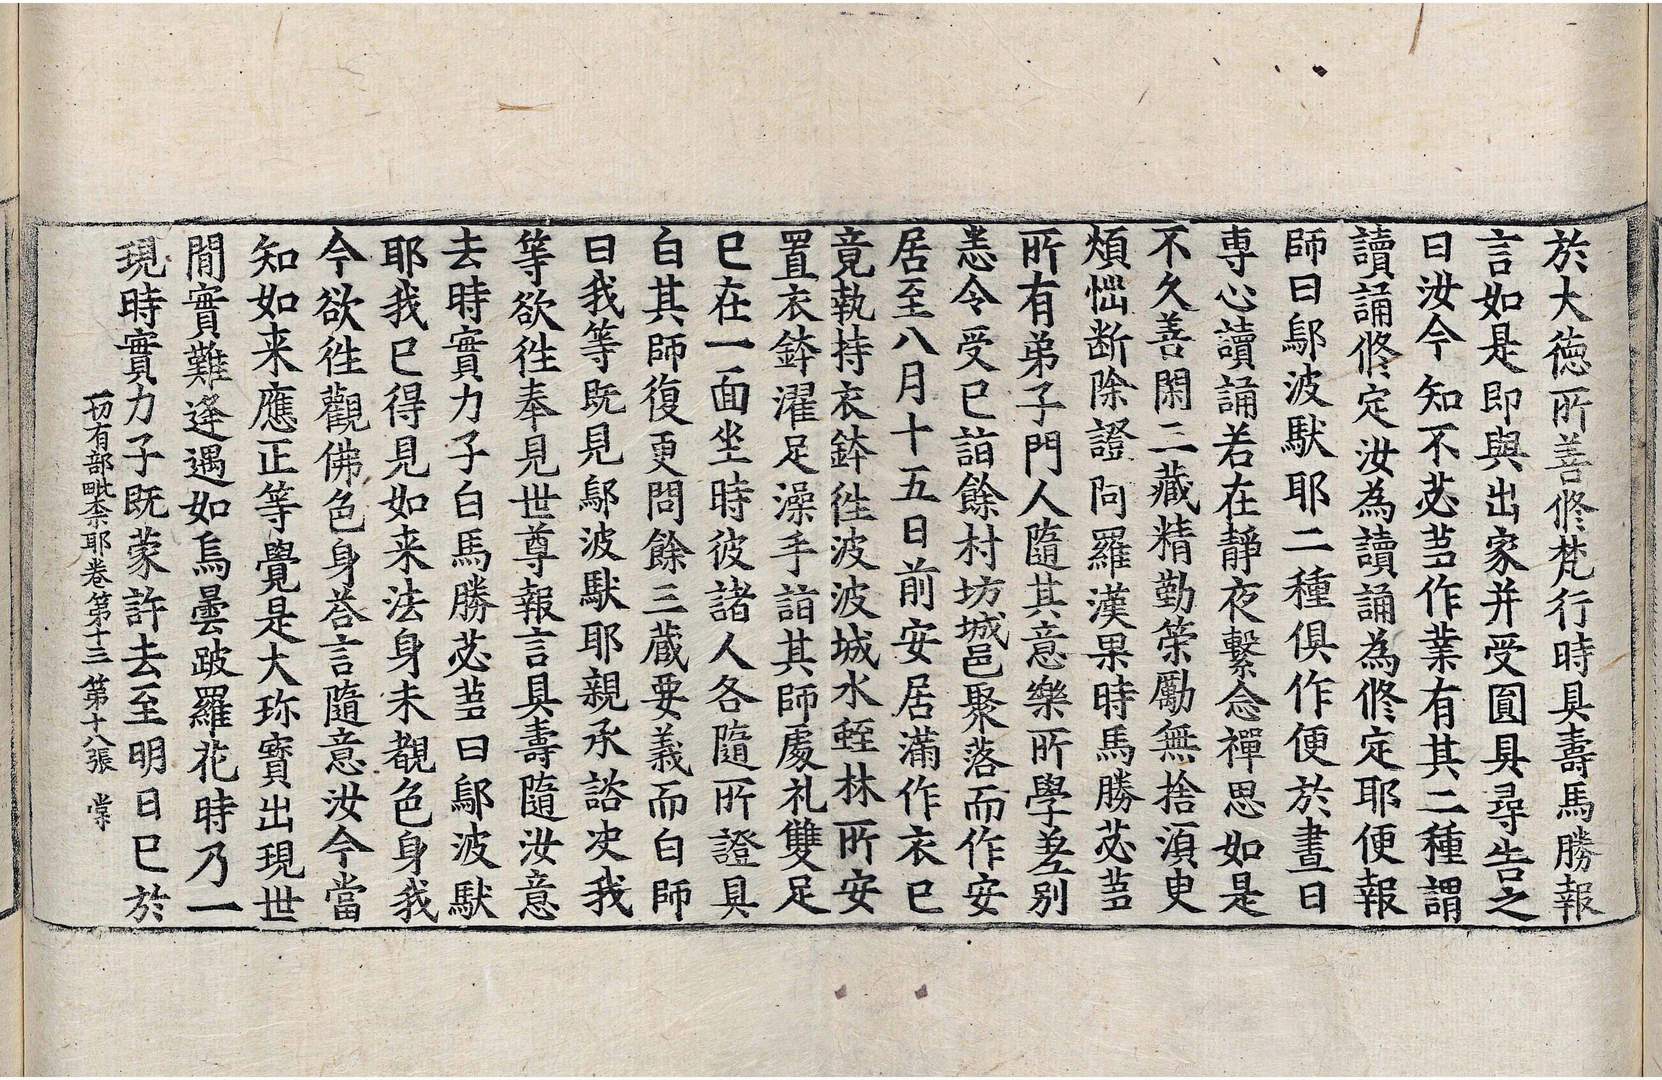 於大德所善修梵行時具壽馬勝報
言如是即與出家并受圓具尋告之
曰汝今知不苾芻作業有其二種謂
讀誦修定汝為讀誦為修定耶便報
師曰鄔波馱耶二種俱作便於晝日
專心讀誦若在靜夜繫念禪思如是
不久善閑三藏精勤策勵無捨須臾
煩惱断除證阿羅漢果時馬勝苾芻
所有弟子門人隨其意樂所學差別
悉令受已詣餘村坊城邑聚落而作安
居至八月十五日前安居滿作衣已
竟執持衣鉢徃波波城水蛭林所安
置衣鉢濯足澡手詣其師處礼雙足
已在一面坐時彼諸人各隨所證具
白其師復更問餘三藏要義而白師
曰我等既見鄔波馱耶親承諮決我
等欲徃奉見世尊報言具壽隨汝意
去時實力子白馬勝苾芻曰鄔波馱
耶我已得見如来法身未覩色身我
今欲徃觀佛色身荅言隨意汝今當
知如来應正等覺是大珎寳出現世
間實難逢遇如烏曇跛羅花時乃一
現時實力子既蒙許去至明日已於
一切有部毗奈耶卷第十三 第十八張 棠